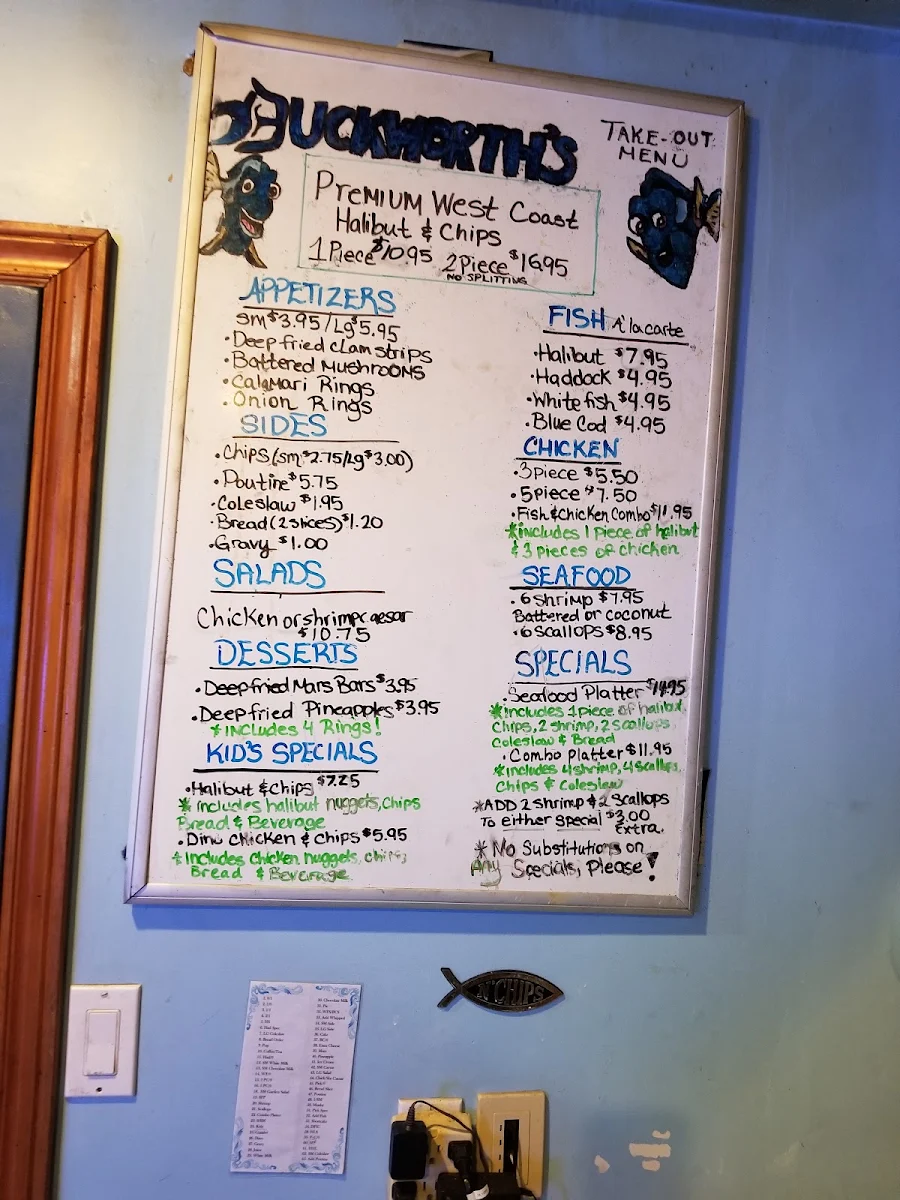 DUCKWORTH'S
TAKE-OUT
MENU
PREMIUM WEST COAST
Halibut & Chips
1 Piece $10.95 2 Piece $16.95
NO SPLITTING
APPETIZERS
sm $3.95/Lg $5.95
•Deep fried clam strips
•Battered MushROOMS
•Calamari Rings
•Onion Rings
SIDES
•Chips (sm $2.75/Lg $3.00)
•Poutine $5.75
•Coleslaw $1.95
•Bread (2 slices) $1.20
•Gravy $1.00
SALADS
Chicken or shrimp caesar
$10.75
DESSERTS
•Deepfried Mars Bars $3.95
•Deep fried Pineapples $3.95
*INCLUDES 4 Rings!
KID'S SPECIALS
•Halibut & chips $7.25
*includes halibut nuggets, chips
Bread & Beverage
•Dino chicken & chips $5.95
*Includes chicken nuggets, chips,
Bread & Beverage
FISH A'la carte
•Halibut $7.95
•Haddock $4.95
•White fish $4.95
•Blue Cod $4.95
CHICKEN
•3 piece $5.50
•5 piece $7.50
•Fish & chicken Combo $11.95
*includes 1 piece of halibut
& 3 pieces of chicken
SEAFOOD
•6 shrimp $7.95
Battered or coconut
•6 Scallops $8.95
SPECIALS
•Seafood Platter $14.95
*includes 1 piece of halibut,
Chips, 2 shrimp, 2 scallops,
Coleslaw & Bread
•Combo platter $11.95
*includes 4 shrimp, 4 scallops,
Chips & Coleslaw
*ADD 2 shrimp & 2 Scallops
To either special $3.00
Extra.
*No Substitutions on
Any Specials, Please!
N' CHIPS